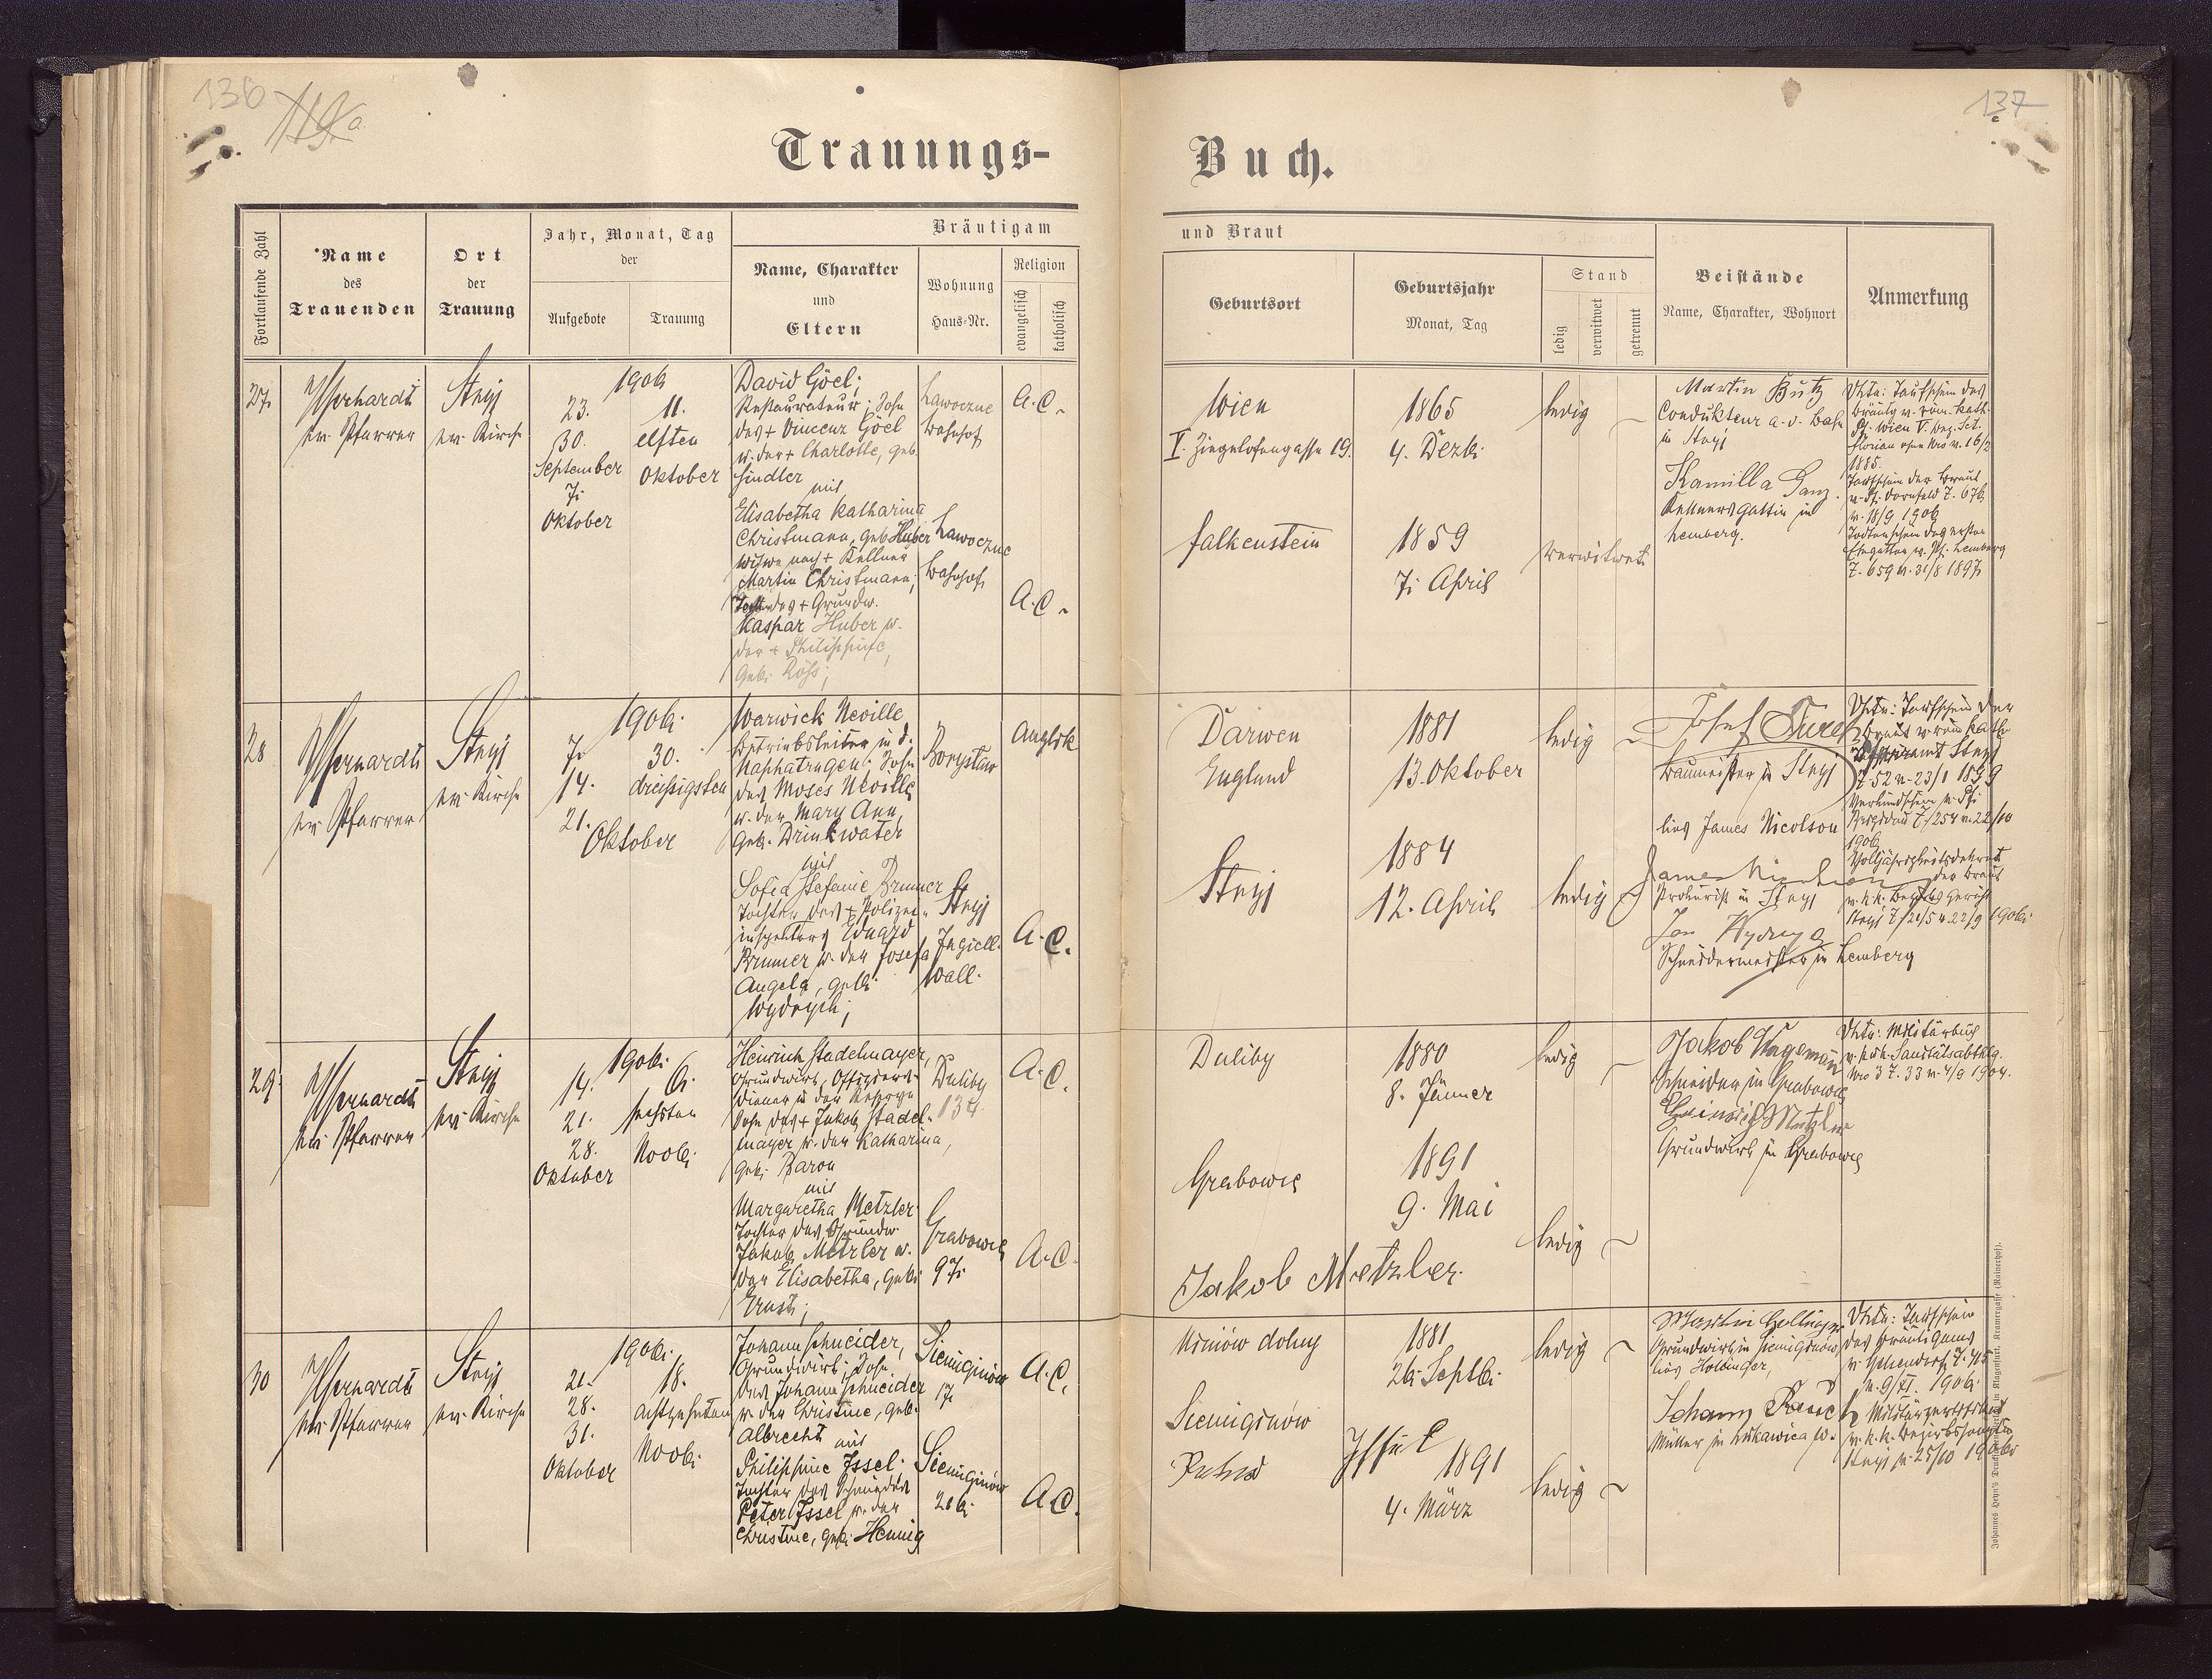 136
137
Trauungs-
Buch.
Fortlaufende Zahl
Name
des
Trauenden
Ort
der
Trauung
Jahr, Monat, Tag
der
Aufgebote
Trauung
Bräutigam
Name, Charakter
und
Eltern
Wohnung
Haus-Nr.
Religion
evangelisch
katholisch
und Braut
Geburtsort
Geburtsjahr
Monat, Tag
Stand
ledig
verwitwet
getrennt
Beistände
Name, Charakter, Wohnort
Anmerkung
27.
ev. Pfarrer
Stryj
ev. Kirche
1906
23.
30.
September
7.
Oktober
11.
elften
Oktober
David Göcl;
Restaurateur; Sohn
des + Vincenz Göcl
u. der + Charlotte, geb.
Sindler
mit
Elisabetha Katharina
Christmann, geb. Huber
Witwe nach + Kellner
Martin Christmann;
Tochter des + Grundw.
Kaspar Huber u.
der + Philippine,
geb. Röß;
Lawoczne
Bahnhof
Lawoczne
Bahnhof
A.C.
A.C.
Wien
V. Ziegelofengasse 19.
Falkenstein
1865
4. Dezb.
1859
7. April
ledig
verwitwet
Martin Butz
Condukteur a. d. Bahn
in Stryj
Kamilla Ganz
Kellnersgattin in
Lemberg.
Taufschein des
Bräutg v. röm. kath.
Pf. Wien V. Bez. Sct.
Florian
1885.
Taufschein der Braut
v. Pf. Dornfeld Z. 676
v. 18/9 1906
Todtenschein des ersten
Ehegatten v. Pf. Lemberg
Z. 659 v. 31/8 1897.
28
ev. Pfarrer
Stryj
ev. Kirche
1906.
7.
14.
21.
Oktober
30.
dreißigsten
Warwick Neville
Betriebsleiter in d.
Naphatragen: Sohn
des Moses Neville
u. der Mary Ann,
geb. Drinkwater
mit
Sofia Stefanie Brunner
Tochter des + Polizei-
inspektors Eduard
Brunner u. der Josefa
Angela, geb.
Wydrych;
Boryslaw
Stryj
Jagiell.
Wall.
Anglik
A.C.
Darwen
England
Stryj
1881
13. Oktober
1884
12. April
ledig
ledig
Josef
Baumeister in Stryj
lies James Nicolson
Prokurist in Stryj
Schneidermeister in Lemberg
Taufschein der
Braut v. röm. kath.
Pfarramt Stryj
Z. 52 v. 23/1 1899
Z. 254 v. 22/10
1906
Volljährigkeitsdekret
der Braut
v. k. k. Bezirks Gericht
Stryj
1906.
29.
ev. Pfarrer
Stryj
ev. Kirche
1906.
14.
21.
28.
Oktober
6.
sechsten
Novb.
Heinrich Stadelmayer,
Grundwirt, Offiziers-
diener in der Reserve
Sohn des + Jakob Stadel-
mayer u. der Katharina,
geb. Baron
mit
Margaretha Metzler
Tochter des Grundw
Jakob Metzler u.
der Elisabetha, geb.
Ernst;
Duliby
134.
Grabowce
97.
A.C.
A.C.
Duliby
Grabowce
Jakob Metzler.
1880
8. Jänner
1891
9. Mai
ledig
ledig
Jakob Hagemann
Schneider in Grabowce
Heinrich Metzler
Grundwirt in Grabowce
Militärbuch
v. k. u. k. Sanitätsabthlg.
Nro 3 Z. 33 v. 4/9 1904.
30
ev. Pfarrer
Stryj
ev. Kirche
1906.
21.
28.
31.
Oktober
18.
achtzehnten
Novb.
Johann Schneider,
Grundwirt: Sohn
des Johann Schneider
u. der Christine, geb.
Albrecht
mit
Philippine Issel
Tochter des Schmiedes
Peter Issel u. der
Christine, geb. Hennig
Siemiginów
17.
Siemiginów
26.
A.C.
A.C.
Uciniów dolny
Siemiginów
1881
26. Septb.
1891
4. März
ledig
ledig
Grundwirt in Siemiginów,
lies Hollinger,
Johann
Müller in Lukawica w.
Taufschein
des Bräutigams
v. 9/XI. 1906.
v. k. k. Bezirkshauptm
Stryj v. 25/10 1906
Johannes Heyn's Druckerei in Klagenfurt, Kramergasse (Rainerhof).